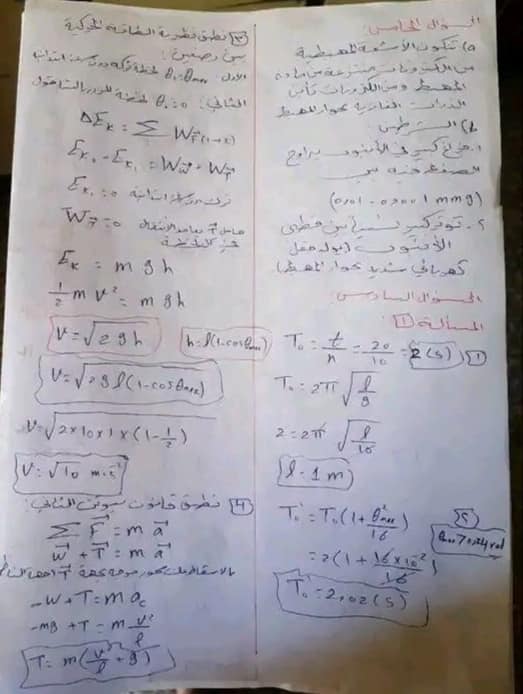 السؤال الخامس:
a) تتكون الأشعة المهبطية
من الكترونات منتزعة من مادة
المهبط ومن الكترونات تأين
الذرات الغازية بجوار المهبط
b) الشرطين
1. فراغ كبير في الأنبوب يتراوح
الضغط فيه بين
(0,01 - 0,001 mmHg)
2. توتر كبير نسبياً بين قطبي
الأنبوب (يولد حقل
كهربائي شديد بجوار المهبط)
السؤال السادس:
المسألة 1:
1 T₀ = t/n = 20/10 = 2 (s)
T₀ = 2π √(l/g)
2 = 2π √(l/10)
l = 1 m
2
T₀' = T₀ (1 + θ²max/16)
= 2 (1 + 16×10⁻²/16)
T₀' = 2,02 (s)
3 نطبق نظرية الطاقة الحركية
بين وضعين:
الأول θ₁ = θmax لحظة تركه دون سرعة ابتدائية
الثاني: θ₂ = 0 لحظة المرور بالشاقول
ΔEk = Σ WF (1→2)
Ek₂ - Ek₁ = WW + WT
Ek₁ = 0 ترك دون سرعة ابتدائية
WT = 0 حامل T يعامد الانتقال
في كل لحظة
Ek = m g h
1/2 m v² = m g h
v = √2 g h h = l(1-cosθmax)
v = √2 g l (1-cosθmax)
v = √2×10×1×(1-1/2)
v = √10 m.s⁻¹
4 نطبق قانون نيوتن الثاني:
Σ F = m a
W + T = m a
بالاسقاط على محور موجه بجهة T
-W + T = m ac
-mg + T = m v²/l
T = m (v²/l + g)